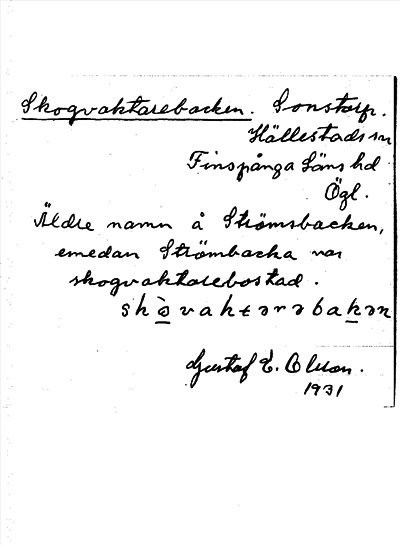 Skogvaktarebacken. Sonstorp.
Hällestads sn
Finspånga läns hd
Ögl.
Äldre namn å Strömsbacken,
emedan Strömbacka var
skogvaktarebostad.
Gustaf E. Olson.
1931